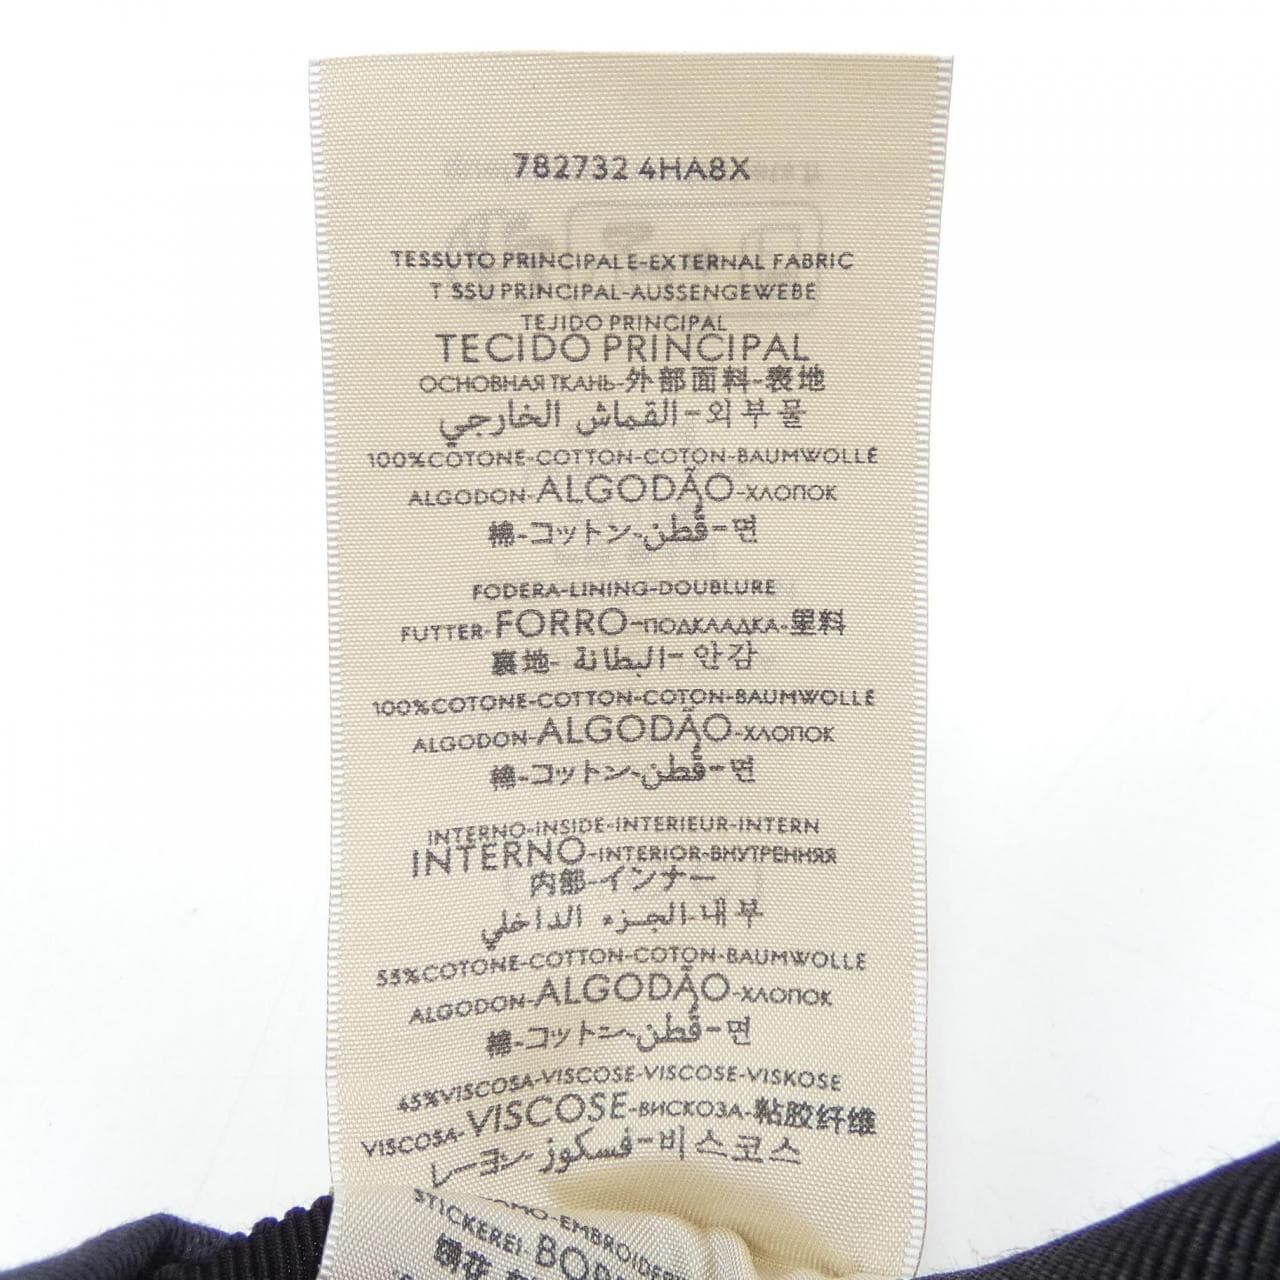 782732 4HA8X
TESSUTO PRINCIPALE-EXTERNAL FABRIC
T SSU PRINCIPAL-AUSSENGEWEBE
TEJIDO PRINCIPAL
TECIDO PRINCIPAL
ОСНОВНАЯ ТКАНЬ-外部面料-表地
القماش الخارجي-외부물
100%COTONE-COTTON-COTON-BAUMWOLLE
ALGODON-ALGODÃO-ХЛОПОК
棉-コットン-قُطن-면
FODERA-LINING-DOUBLURE
FUTTER-FORRO-ПОДКЛАДКА-里料
裏地-البطانة-안감
100%COTONE-COTTON-COTON-BAUMWOLLE
ALGODON-ALGODÃO-ХЛОПОК
棉-コットン-قُطن-면
INTERNO-INSIDE-INTERIEUR-INTERN
INTERNO-INTERIOR-ВНУТРЕННЯЯ
内部-インナー
الجزء الداخلي-내부
55%COTONE-COTTON-COTON-BAUMWOLLE
ALGODON-ALGODÃO-ХЛОПОК
棉-コットン-قُطن-면
45%VISCOSA-VISCOSE-VISCOSE-VISKOSE
VISCOSA-VISCOSE-ВИСКОЗА-粘胶纤维
レーヨン-فسكوز-비스코스
STICKEREI-